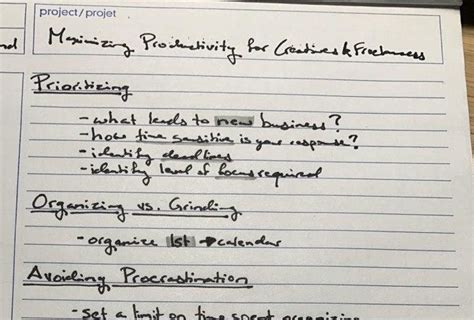 project/projet
nd
Maximizing Productivity for Creatives & Freelancers
Prioritizing
- what leads to new business?
- how time sensitive is your response?
- identify deadlines
- identify level of focus required
Organizing vs. Grinding
- organize 1st → calendar
Avoiding Procrastination
- set a limit on time spent organizing